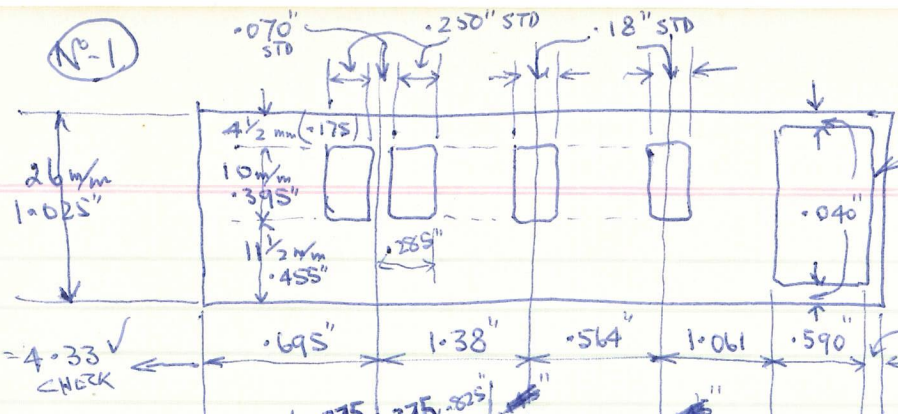 Nº-1
.070" STD
.250" STD
.18" STD
4 1/2 mm (.175)
26 m/m
1.025"
10 m/m
.395"
.040"
11 1/2 m/m
.455"
.285"
=4.33 ✓
CHECK
.695"
1.38"
.564"
1.061
.590"
.275
.825"